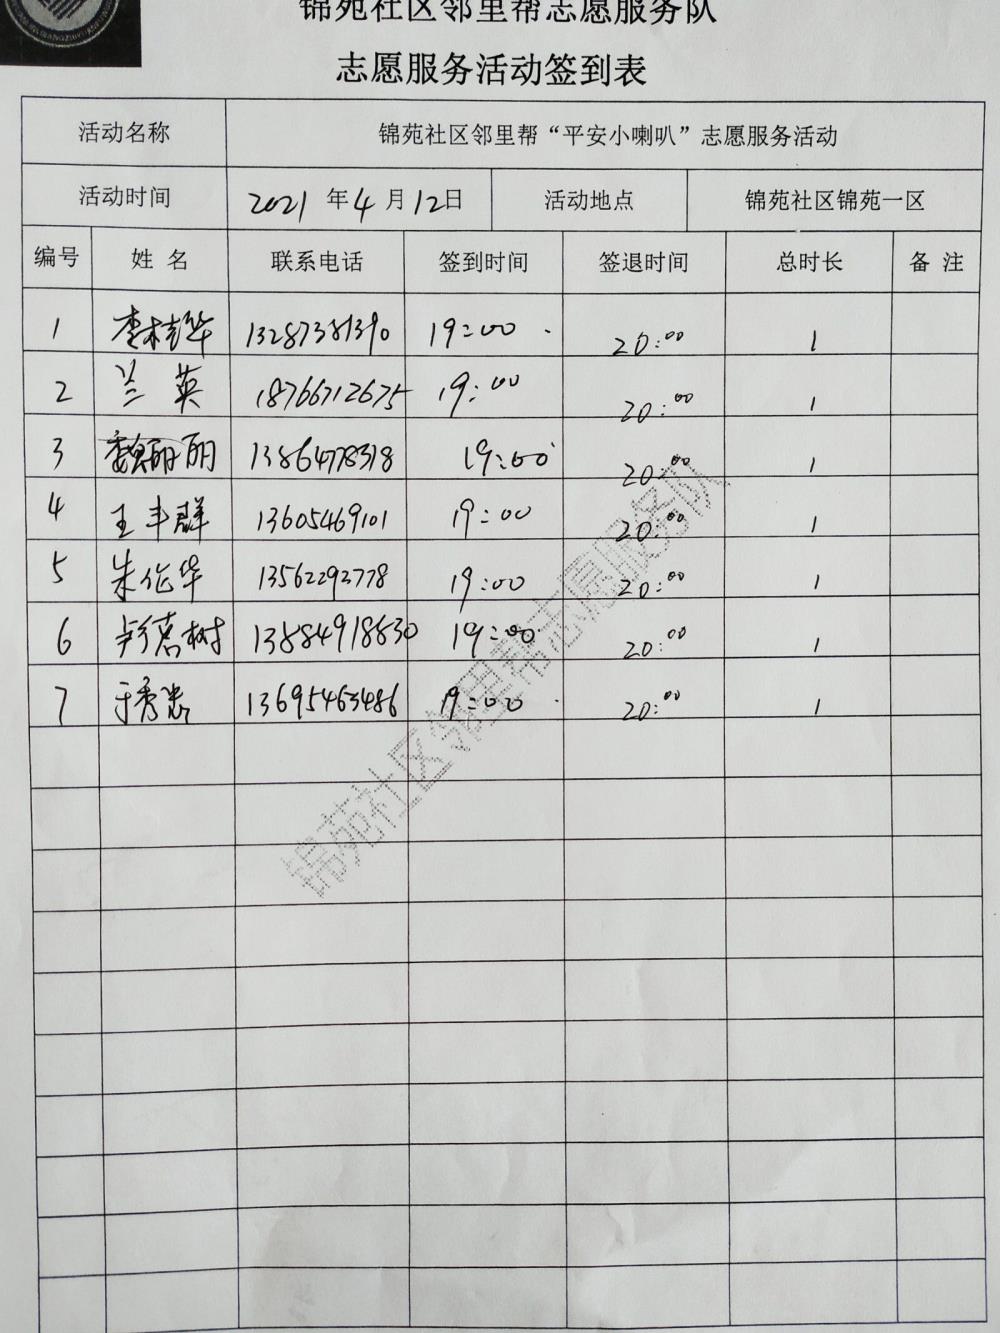 锦苑社区邻里帮志愿服务队
志愿服务活动签到表
活动名称 锦苑社区邻里帮“平安小喇叭”志愿服务活动
活动时间 2021 年 4 月 12 日 活动地点 锦苑社区锦苑一区
编号 姓 名 联系电话 签到时间 签退时间 总时长 备 注
1 李桂华 13287381390 19:00 20:00 1
2 兰英 18766712675 19:00 20:00 1
3 魏丽丽 13864778318 19:00 20:00 1
4 王丰群 13605469101 19:00 20:00 1
5 朱作华 13562292778 19:00 20:00 1
6 树 13884918830 19:00 20:00 1
7 于秀 13695463486 19:00 20:00 1
锦苑社区邻里帮志愿服务队